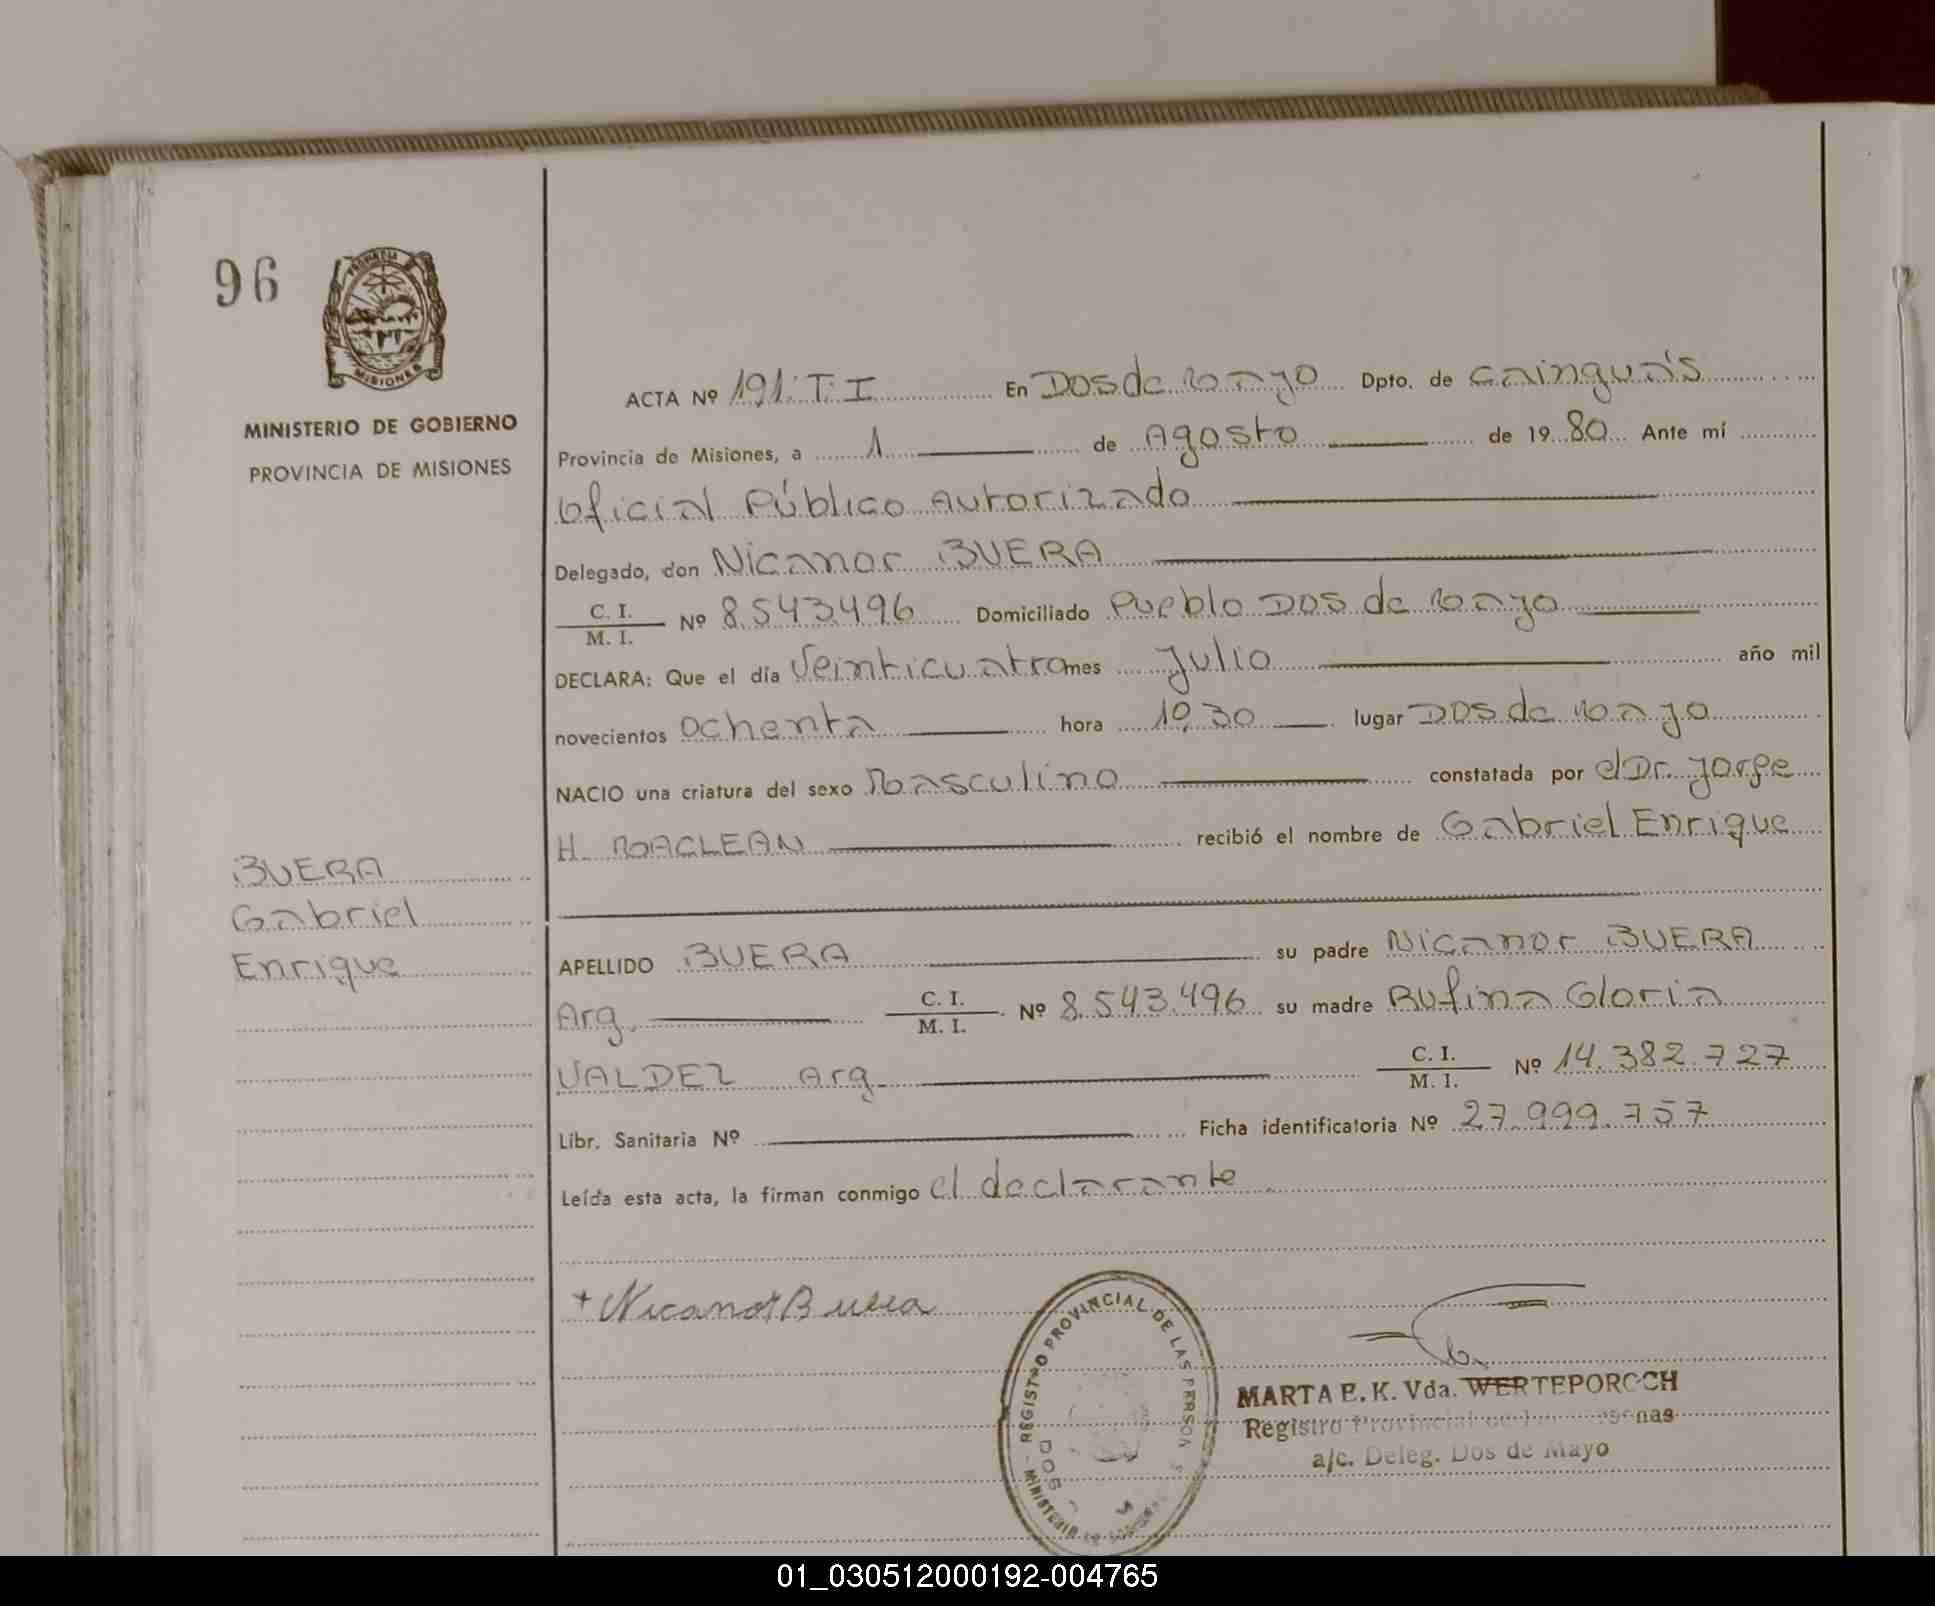 96
PROVINCIA
MISIONES
MINISTERIO DE GOBIERNO
PROVINCIA DE MISIONES
BUERA
Gabriel
Enrique
ACTA Nº 191. T. I En Dos de Mayo Dpto. de Cainguás
Provincia de Misiones, a 1 de Agosto de 1980 Ante mí
Oficial Público Autorizado
Delegado, don Nicanor BUERA
C. I.
M. I. Nº 8.543.496 Domiciliado Pueblo Dos de Mayo
DECLARA: Que el día Veinticuatro mes Julio año mil
novecientos ochenta hora 10,30 lugar Dos de Mayo
NACIO una criatura del sexo Masculino constatada por el Dr. Jorge
H. MACLEAN recibió el nombre de Gabriel Enrique
APELLIDO BUERA su padre Nicanor BUERA
Arg. C. I.
M. I. Nº 8.543.496 su madre Rufina Gloria
VALDEZ Arg. C. I.
M. I. Nº 14.382.727
Libr. Sanitaria Nº Ficha identificatoria Nº 27.999.757
Leída esta acta, la firman conmigo el declarante
+ Nicanor Buera
REGISTRO PROVINCIAL DE LAS PERSON S
MINISTERIO
DOS
MARTA E. K. Vda. WERTEPOROCH
Registro Provincial
a/c. Deleg. Dos de Mayo
01_030512000192-004765